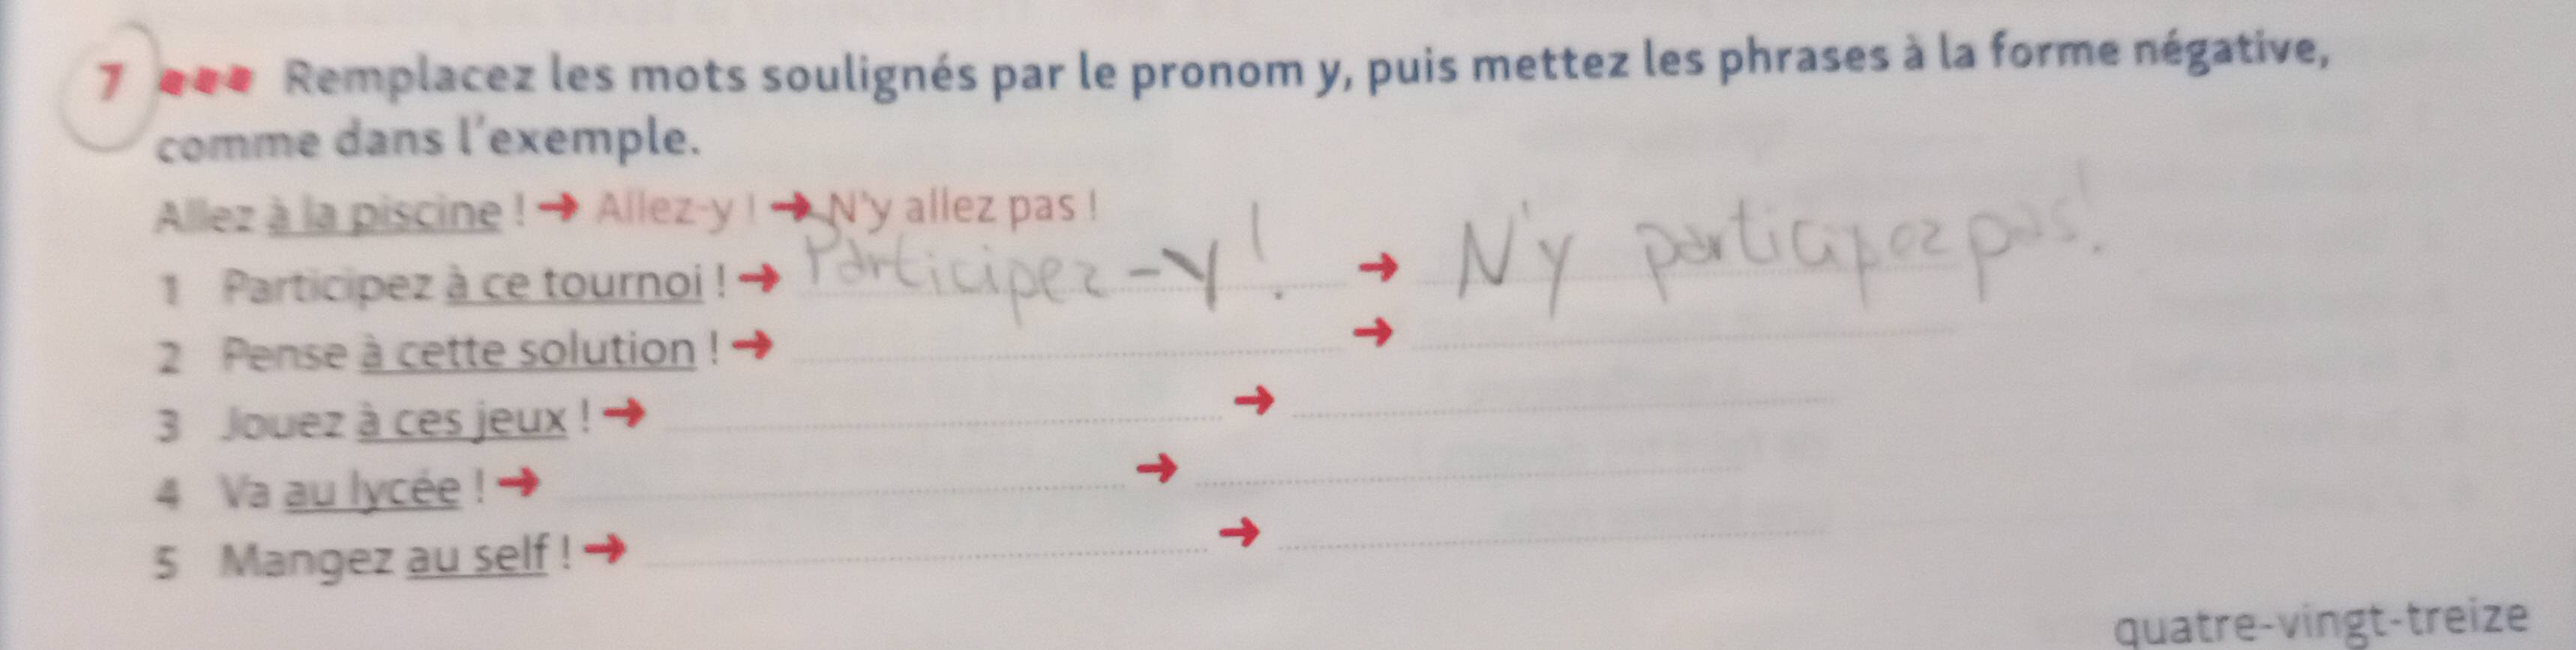 7 Remplacez les mots soulignés par le pronom y, puis mettez les phrases à la forme négative,
comme dans l'exemple.
Allez à la piscine ! → Allez-y ! → N'y allez pas !
1 Participez à ce tournoi ! → Participez-y ! → N'y participez pas !
2 Pense à cette solution ! → →
3 Jouez à ces jeux ! → →
4 Va au lycée ! → →
5 Mangez au self ! → →
quatre-vingt-treize